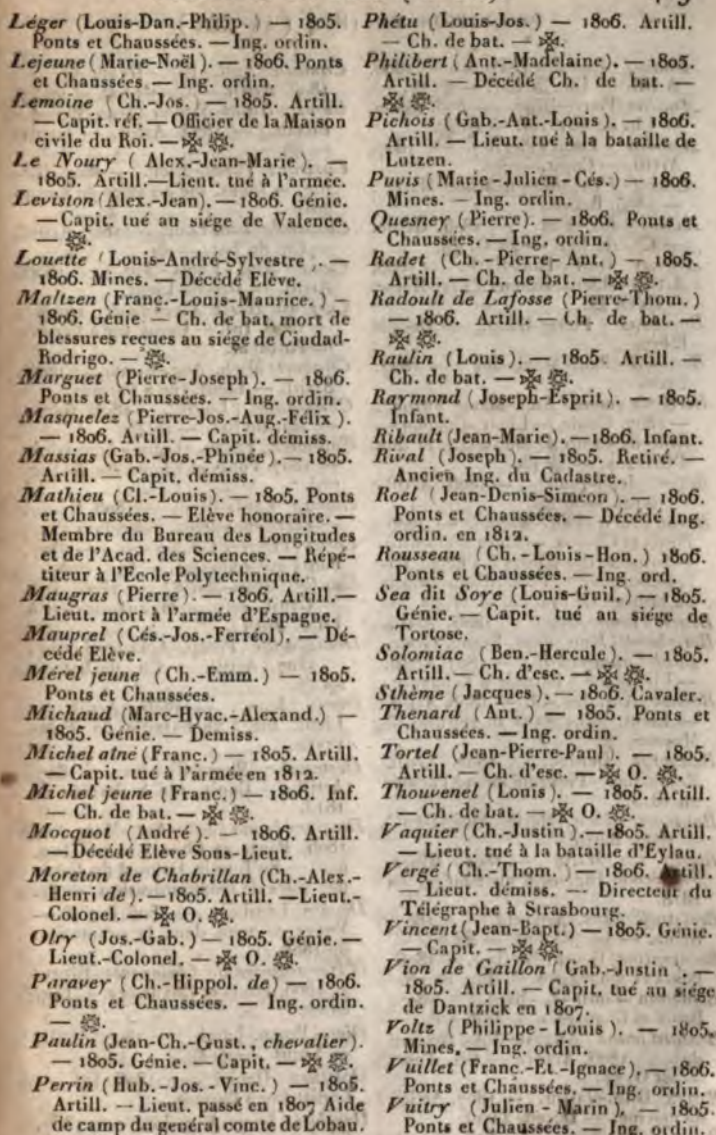 Léger (Louis-Dan.-Philip.) — 1805.
Ponts et Chaussées. — Ing. ordin.
Lejeune (Marie-Noël). — 1806. Ponts
et Chaussées — Ing. ordin.
Lemoine (Ch.-Jos. — 1805. Artill.
— Capit. réf. — Officier de la Maison
civile du Roi. — ✠ ❁.
Le Noury (Alex.-Jean-Marie). —
1805. Artill. — Lieut. tué à l'armée.
Leviston (Alex.-Jean). — 1806. Génie.
— Capit. tué au siége de Valence.
— ❁.
Louette (Louis-André-Sylvestre). —
1806. Mines. — Décédé Elève.
Maltzen (Franç.-Louis-Maurice.) —
1806. Génie — Ch. de bat. mort de
blessures reçues au siége de Ciudad-
Rodrigo. — ❁.
Marguet (Pierre-Joseph). — 1806.
Ponts et Chaussées. — Ing. ordin.
Masquelez (Pierre-Jos.-Aug.-Félix).
— 1806. Artill. — Capit. démiss.
Massias (Gab.-Jos.-Phinée). — 1805.
Artill. — Capit. démiss.
Mathieu (Cl.-Louis). — 1805. Ponts
et Chaussées. — Elève honoraire. —
Membre du Bureau des Longitudes
et de l'Acad. des Sciences. — Répé-
titeur à l'Ecole Polytechnique.
Maugras (Pierre). — 1806. Artill. —
Lieut. mort à l'armée d'Espagne.
Mauprel (Cés.-Jos.-Ferréol). — Dé-
cédé Elève.
Mérel jeune (Ch.-Emm.) — 1805.
Ponts et Chaussées.
Michaud (Marc-Hyac.-Alexand.) —
1805. Génie. — Demiss.
Michel aîné (Franc.) — 1805. Artill.
— Capit. tué à l'armée en 1812.
Michel jeune (Franc.) — 1806. Inf.
— Ch. de bat. — ✠ ❁.
Mocquot (André). — 1806. Artill.
— Décédé Elève Sous-Lieut.
Moreton de Chabrillan (Ch.-Alex.-
Henri de). — 1805. Artill. — Lieut.-
Colonel. — ✠ O. ❁.
Olry (Jos.-Gab.) — 1805. Génie. —
Lieut.-Colonel. — ✠ O. ❁.
Paravey (Ch.-Hippol. de) — 1806.
Ponts et Chaussées. — Ing. ordin.
— ❁.
Paulin (Jean-Ch.-Gust., chevalier).
— 1805. Génie. — Capit. — ✠ ❁.
Perrin (Hub.-Jos.-Vinc.) — 1805.
Artill. — Lieut. passé en 1807 Aide
de camp du général comte de Lobau.
Phétu (Louis-Jos.) — 1806. Artill.
— Ch. de bat. — ✠.
Philibert (Ant.-Madelaine). — 1805.
Artill. — Décédé Ch. de bat. —
✠ ❁.
Pichois (Gab.-Ant.-Louis). — 1806.
Artill. — Lieut. tué à la bataille de
Lutzen.
Puvis (Marie-Julien-Cés.) — 1806.
Mines. — Ing. ordin.
Quesney (Pierre). — 1806. Ponts et
Chaussées. — Ing. ordin.
Radet (Ch.-Pierre-Ant.) — 1805.
Artill. — Ch. de bat. — ✠ ❁.
Radoult de Lafosse (Pierre-Thom.)
— 1806. Artill. — Ch. de bat. —
✠ ❁.
Raulin (Louis). — 1805. Artill. —
Ch. de bat. — ✠ ❁.
Raymond (Joseph-Esprit). — 1805.
Infant.
Ribault (Jean-Marie). — 1806. Infant.
Rival (Joseph). — 1805. Retiré. —
Ancien Ing. du Cadastre.
Roel (Jean-Denis-Siméon). — 1806.
Ponts et Chaussées. — Décédé Ing.
ordin. en 1812.
Rousseau (Ch.-Louis-Hon.) 1806.
Ponts et Chaussées. — Ing. ord.
Sea dit Soye (Louis-Guil.) — 1805.
Génie. — Capit. tué au siége de
Tortose.
Solomiac (Ben.-Hercule). — 1805.
Artill. — Ch. d'esc. — ✠ ❁.
Sthème (Jacques). — 1806. Cavaler.
Thenard (Ant.) — 1805. Ponts et
Chaussées. — Ing. ordin.
Tortel (Jean-Pierre-Paul). — 1805.
Artill. — Ch. d'esc. — ✠ O. ❁.
Thouvenel (Louis). — 1805. Artill.
— Ch. de bat. — ✠ O. ❁.
Vaquier (Ch.-Justin). — 1805. Artill.
— Lieut. tué à la bataille d'Eylau.
Vergé (Ch.-Thom.) — 1806. Artill.
— Lieut. démiss. — Directeur du
Télégraphe à Strasbourg.
Vincent (Jean-Bapt.) — 1805. Génie.
— Capit. — ✠ ❁.
Vion de Gaillon (Gab.-Justin). —
1805. Artill. — Capit. tué au siége
de Dantzick en 1807.
Voltz (Philippe-Louis). — 1805.
Mines. — Ing. ordin.
Vuillet (Franc.-Et.-Ignace). — 1806.
Ponts et Chaussées. — Ing. ordin.
Vuitry (Julien-Marin). — 1805.
Ponts et Chaussées. — Ing. ordin.